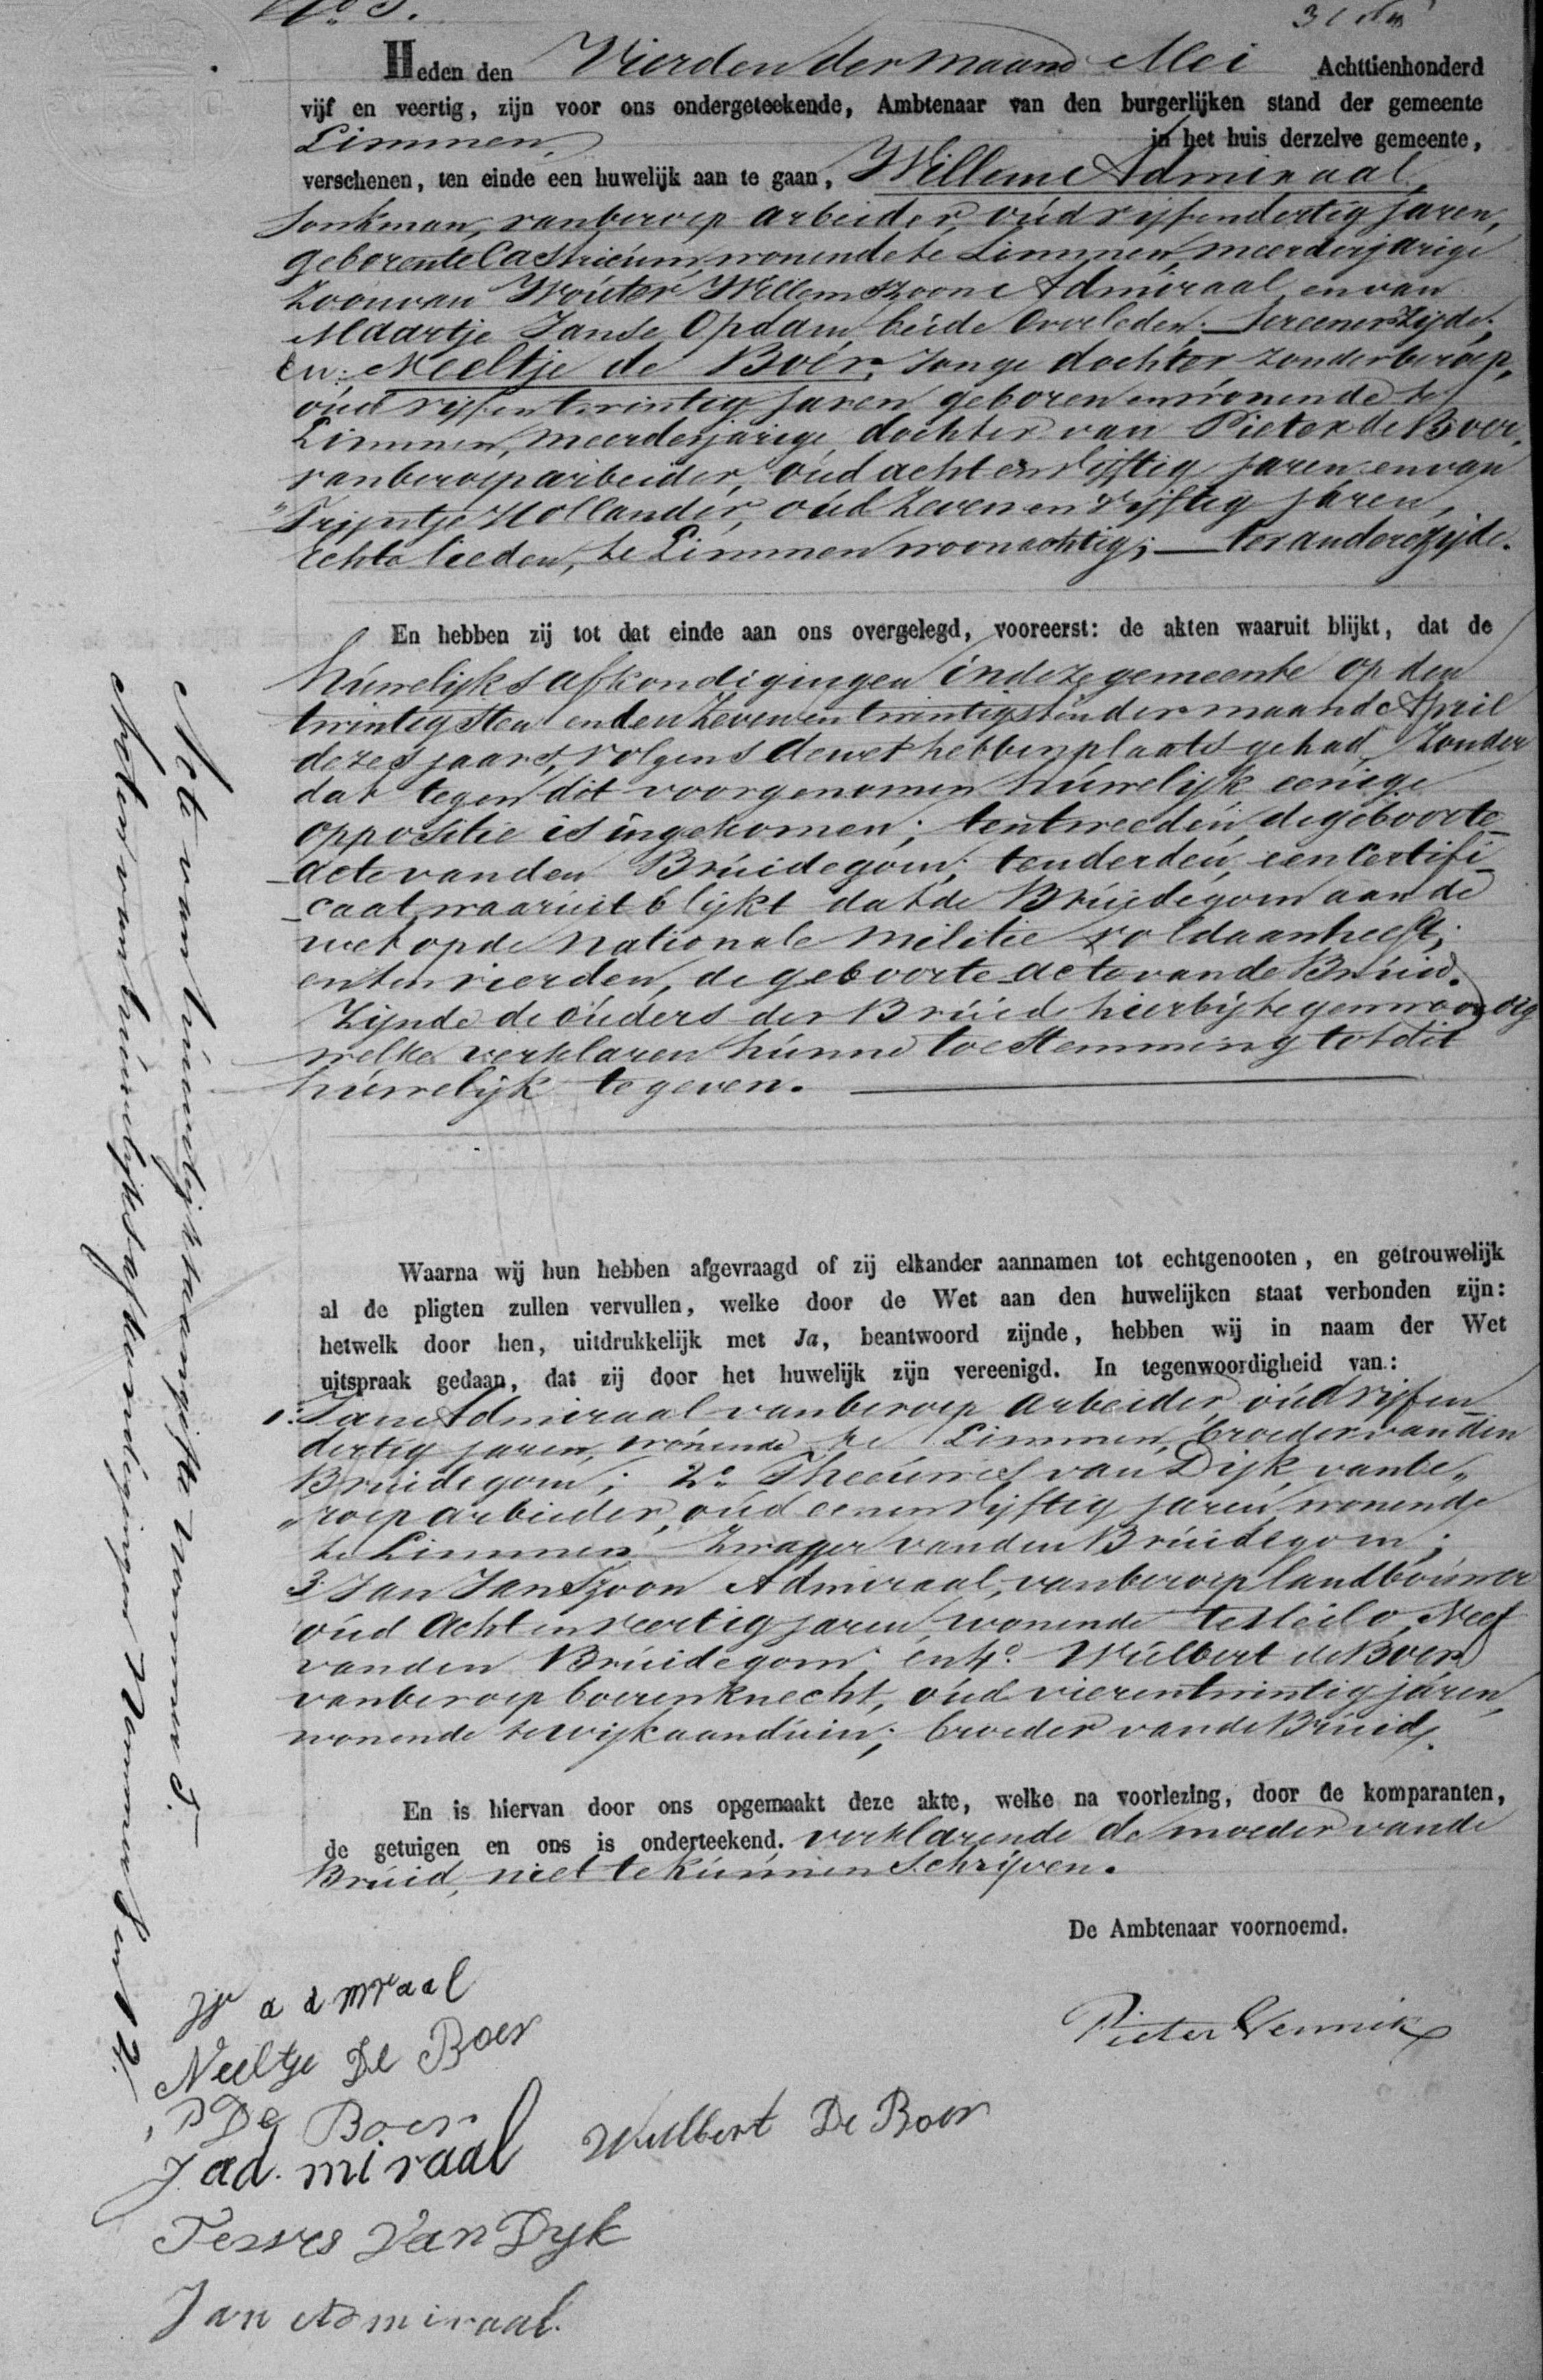 No 5.
Heden den Vierden der maand Mei Achttienhonderd
vijf en veertig, zijn voor ons ondergeteekende, Ambtenaar van den burgerlijken stand der gemeente
Limmen, in het huis derzelve gemeente,
verschenen, ten einde een huwelijk aan te gaan, Willem Admiraal,
Jonkman, van beroep arbeider, oud vijfendertig jaren,
geboren te Castricum, wonende te Limmen, meerderjarige
Zoon van Wouter Willemszoon Admiraal, en van
Maartje Janse Opdam, beide overleden; ter eener Zijde;
En: Neeltje de Boer, Jonge dochter zonder beroep,
oud vijfentwintig jaren geboren en wonende te
Limmen, meerderjarige dochter van Pieter de Boer,
van beroep arbeider, oud acht en vijftig jaren en van
Trijntje Hollander, oud Zeven en vijftig jaren,
echte lieden, te Limmen woonachtig; ter andere zijde.
En hebben zij tot dat einde aan ons overgelegd, vooreerst: de akten waaruit blijkt, dat de
huwelijks afkondigingen in deze gemeente op den
twintigsten en den Zevenentwintigsten der maand April
dezes jaars, volgens de wet hebben plaats gehad, Zonder
dat tegen dit voorgenomen huwelijk eenige
oppositie is ingekomen; ten tweeden, de geboorte-
acte van den Bruidegom; ten derden, een Certifi-
caat waaruit blijkt dat de Bruidegom aan de
wet op de nationale militie voldaan heeft;
en ten vierden, de geboorte acte van de Bruid.
Zijnde de ouders der Bruid hierbij tegenwoordig
welke verklaren hunne toestemming tot dit
huwelijk te geven.
Waarna wij hun hebben afgevraagd of zij elkander aannamen tot echtgenooten, en getrouwelijk
al de pligten zullen vervullen, welke door de Wet aan den huwelijken staat verbonden zijn:
hetwelk door hen, uitdrukkelijk met Ja, beantwoord zijnde, hebben wij in naam der Wet
uitspraak gedaan, dat zij door het huwelijk zijn vereenigd. In tegenwoordigheid van:
1. Jan Admiraal van beroep arbeider, oud vijfen
dertig jaren, wonende te Limmen, broeder van den
Bruidegom; 2o Theeuwes van Dijk, van be„
„roep arbeider, oud eenenvijftig jaren wonende
te Limmen Zwager van den Bruidegom;
3 Jan Janszoon Admiraal, van beroep landbouwer
oud Acht en veertig jaren, wonende te Heilo, Neef
van den Bruidegom, en 4o. Wulbert de Boer
van beroep boerenknecht, oud vierentwintig jaren,
wonende te wijk aan duin; broeder van de Bruid.
En is hiervan door ons opgemaakt deze akte, welke na voorlezing, door de komparanten,
de getuigen en ons is onderteekend. verklarende de moeder van de
Bruid, niet te kunnen Schrijven.
De Ambtenaar voornoemd.
Pieter Vennik
W admraal
Neeltje De Boer
P De Boer
J ad. miraal
Wulbert De Boer
Teswes Van Dyk
Jan Admiraal.
Acte van huwelijks aangifte nommer 5.
Acten van huwelijks afkondigingen Nommers